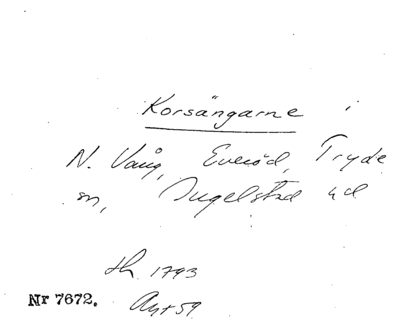 Korsängarne i
N. Vång, Everöd, Tryde
sn, Ingelstad hd
th. 1793
Nr 7672. Avst 59